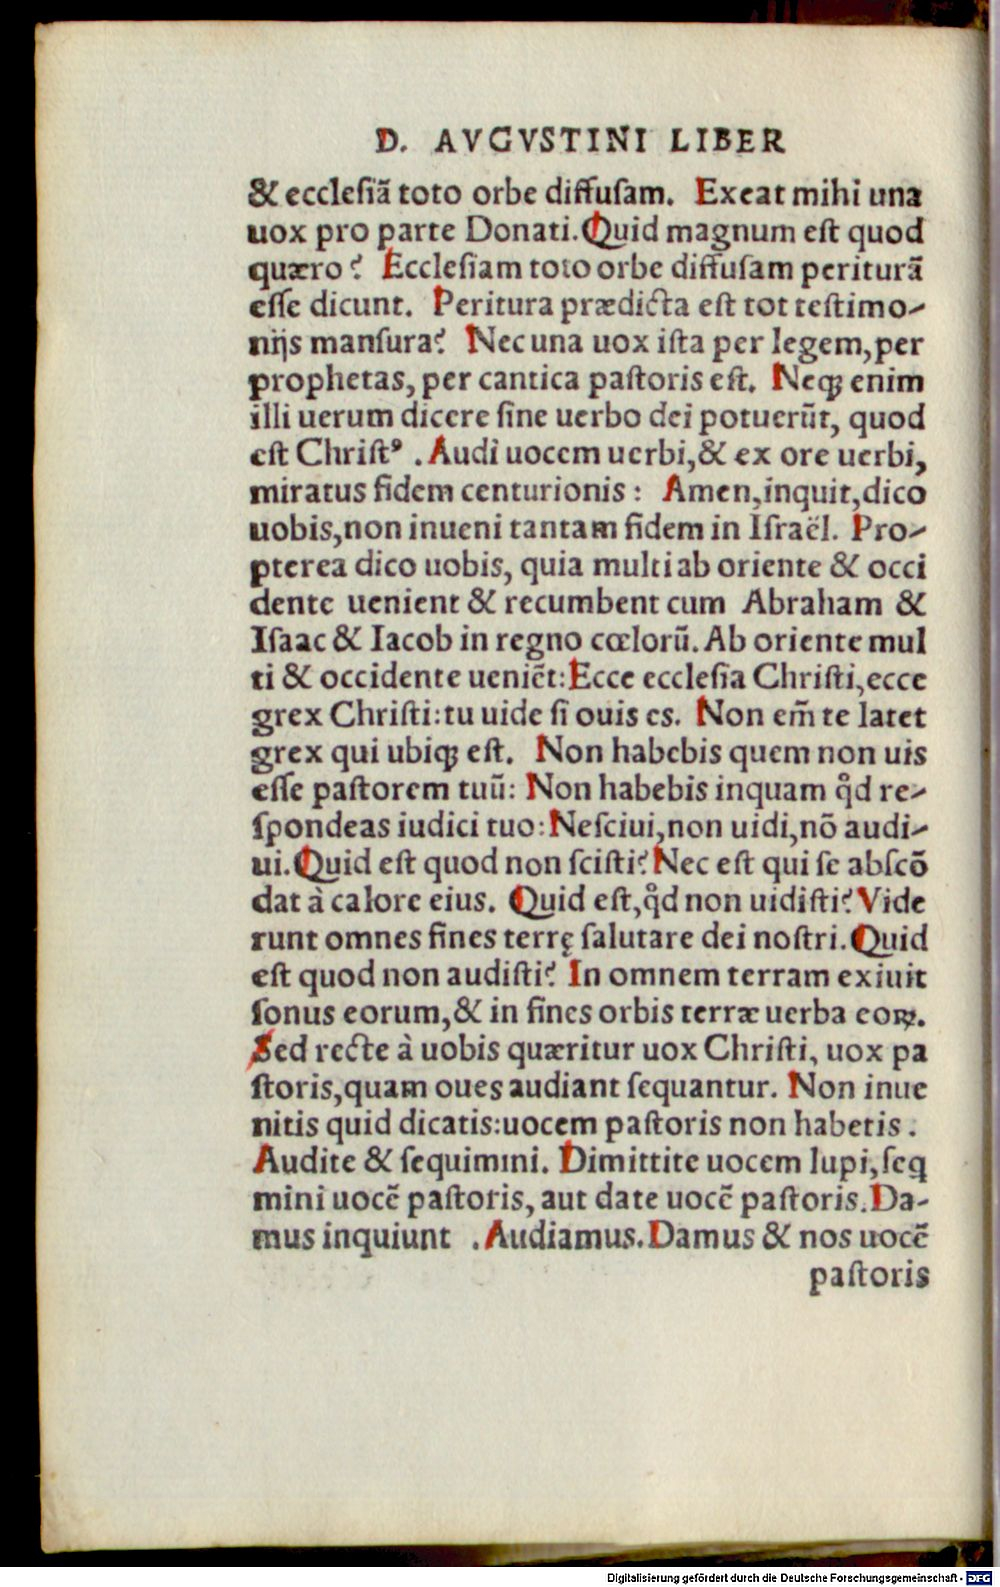 D. AVGVSTINI LIBER
& ecclesiã toto orbe diffusam. Exeat mihi una
uox pro parte Donati. Quid magnum est quod
quæro? Ecclesiam toto orbe diffusam periturã
esse dicunt. Peritura prædicta est tot testimo-
nijs mansura? Nec una uox ista per legem, per
prophetas, per cantica pastoris est. Neqꝫ enim
illi uerum dicere sine uerbo dei potuerũt, quod
est Christꝰ. Audi uocem uerbi, & ex ore uerbi,
miratus fidem centurionis: Amen, inquit, dico
uobis, non inueni tantam fidem in Israël. Pro-
pterea dico uobis, quia multi ab oriente & occi
dente uenient & recumbent cum Abraham &
Isaac & Iacob in regno cœlorũ. Ab oriente mul
ti & occidente ueniẽt: Ecce ecclesia Christi, ecce
grex Christi: tu uide si ouis es. Non em̃ te latet
grex qui ubiqꝫ est. Non habebis quem non uis
esse pastorem tuũ: Non habebis inquam qͦd re-
spondeas iudici tuo: Nesciui, non uidi, nõ audi-
ui. Quid est quod non scisti? Nec est qui se abscõ
dat à calore eius. Quid est, qͦd non uidisti? Vide
runt omnes fines terrę salutare dei nostri. Quid
est quod non audisti? In omnem terram exiuit
sonus eorum, & in fines orbis terræ uerba eoꝝ.
Sed recte à uobis quæritur uox Christi, uox pa
storis, quam oues audiant sequantur. Non inue
nitis quid dicatis: uocem pastoris non habetis.
Audite & sequimini. Dimittite uocem lupi, seq
mini uocẽ pastoris, aut date uocẽ pastoris. Da-
mus inquiunt. Audiamus. Damus & nos uocẽ
pastoris
Digitalisierung gefördert durch die Deutsche Forschungsgemeinschaft - DFG